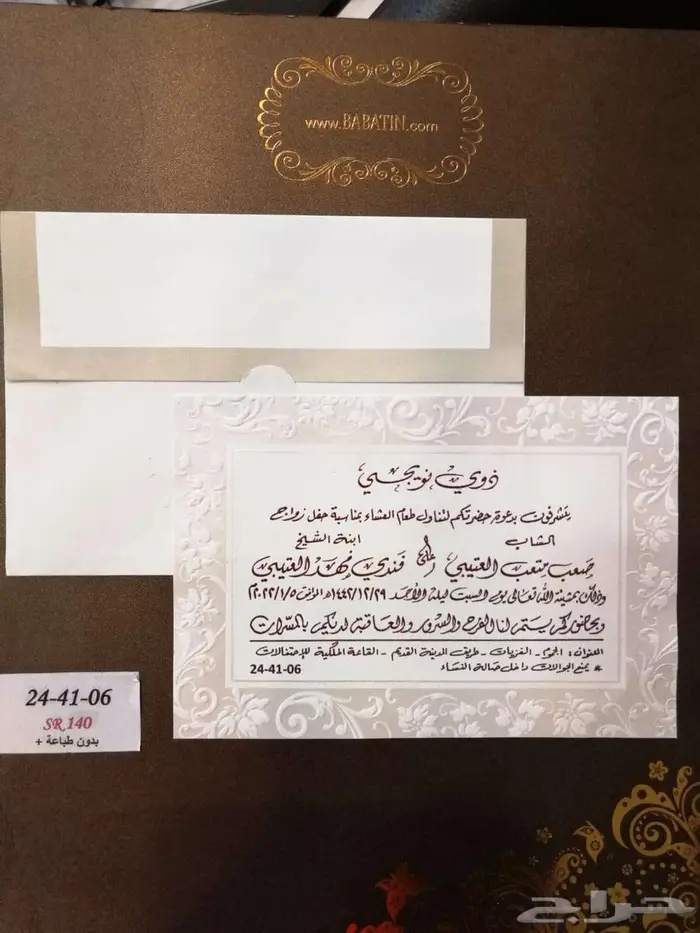 www.BABATIN.com
ذوي نويجي
يتشرفون بدعوة حضرتكم لتناول طعام العشاء بمناسبة حفل زواج
الشاب ابنة الشيخ
صعب متعب العتيبي على فندي فهد العتيبي
وذلك بمشيئة الله تعالى يوم السبت ليلة الأحد ١٤٤٢/١٢/٢٩هـ الموافق ٢٠٢٢/١/٥م
وبحضوركم يتم لنا الفرح والسرور والعاقبة لديكم بالمسرات
العنوان : الجموم - الغربات - طريق المدينة القديم - القاعة الملكية للإحتفالات
* يمنع الجوالات داخل صالة النساء
24-41-06
24-41-06
SR 140
بدون طباعة +
حراج